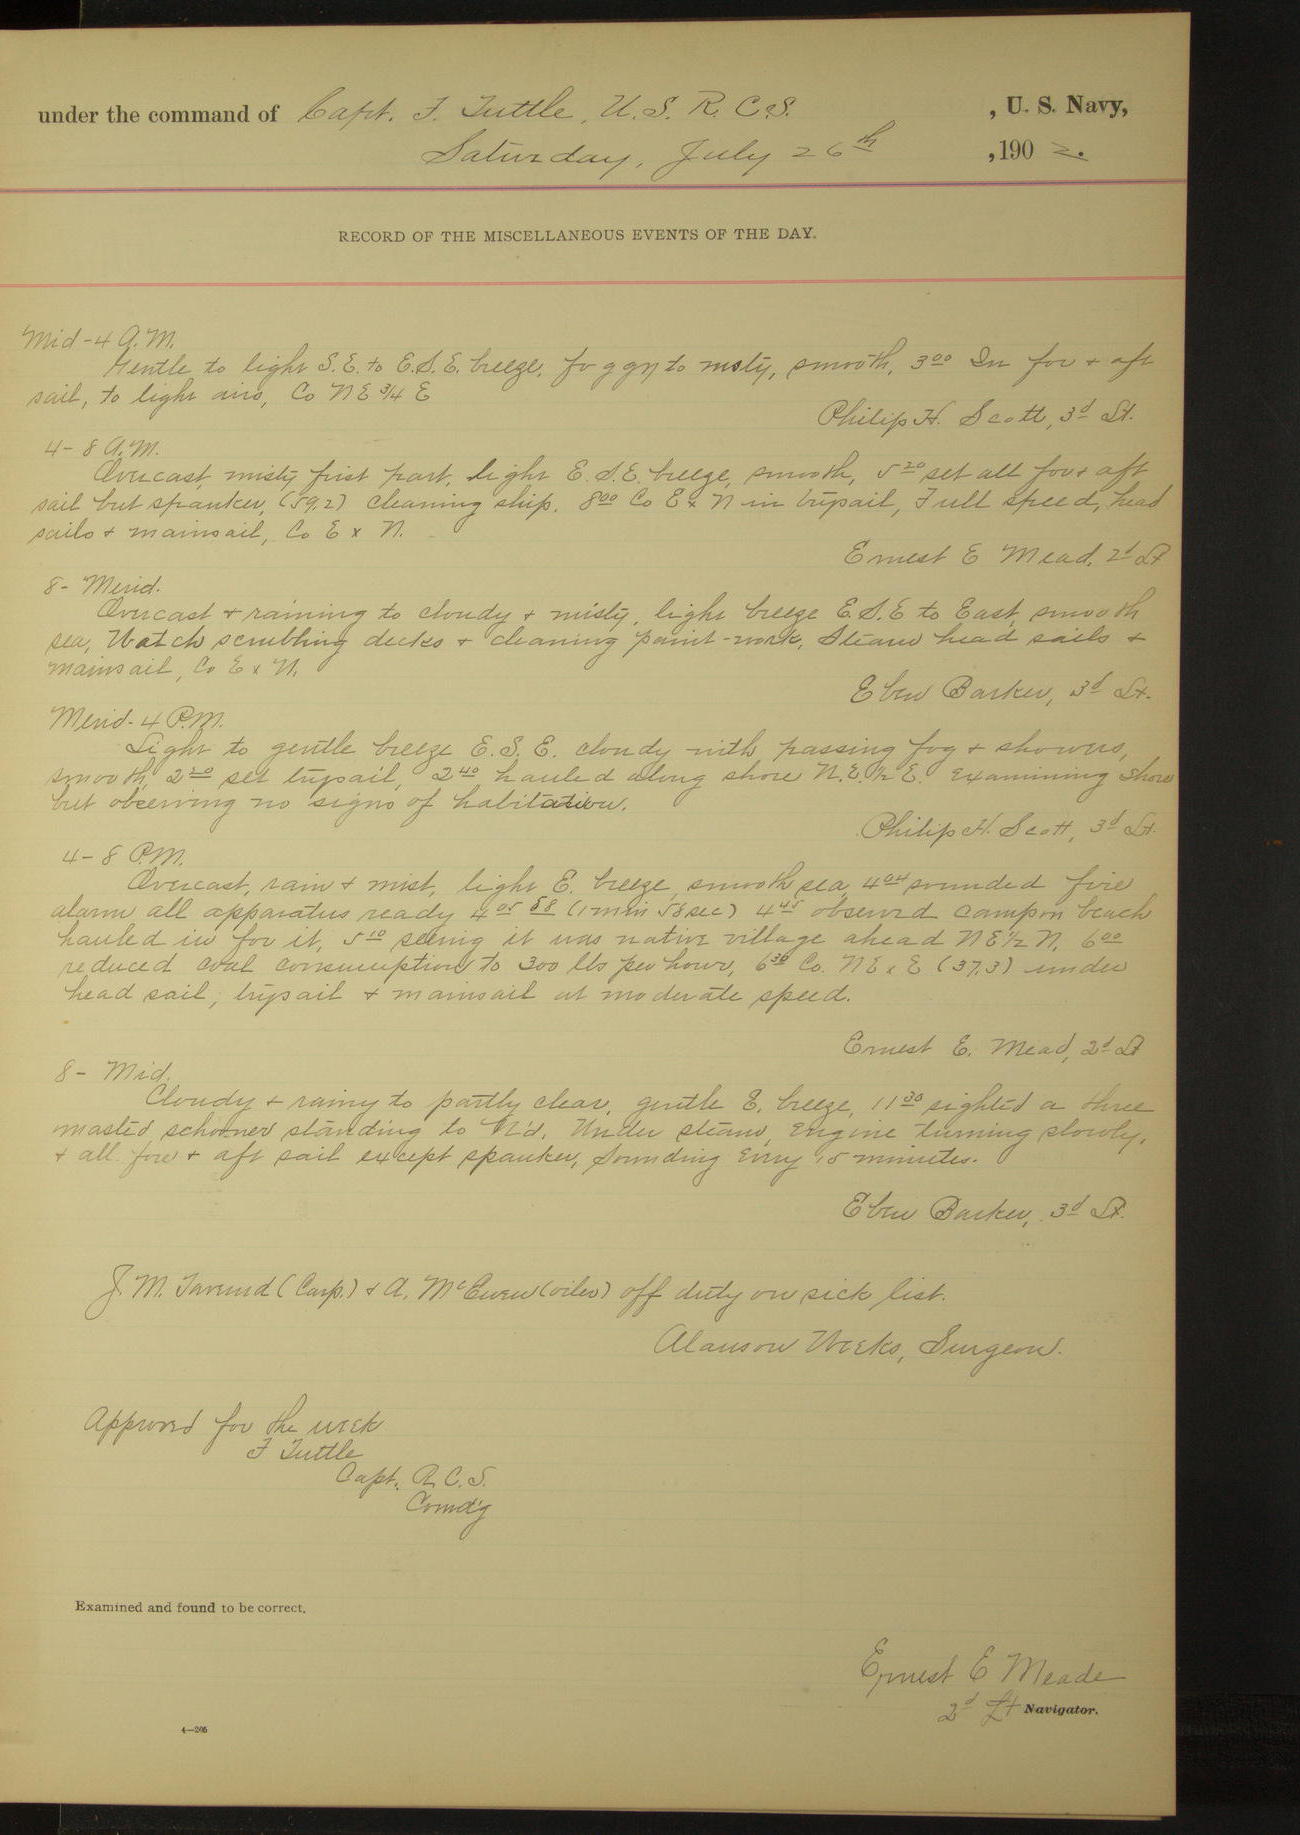 under the command of Capt. F. Tuttle, U. S. R. C. S. , U. S. Navy,
Saturday, July 26th , 190 2.
RECORD OF THE MISCELLANEOUS EVENTS OF THE DAY.
Mid-4 A.M.
Gentle to light S.E. to E.S.E. breeze, foggy to misty, smooth, 3 00 In for + aft
sail, to light airs, Co NE 3/4 E
Philip H. Scott, 3d Lt.
4-8 A.M.
Overcast, misty first part, light E.S.E. breeze, smooth, 5 20 set all for + aft
sail but spanker, (59.2) cleaning ship. 8 00 Co E x N in trysail, Full speed, head
sails + mainsail, Co E x N.
Ernest E Mead, 2d Lt
8- Merid.
Overcast + raining to cloudy + misty, light breeze E.S.E to East, smooth
sea, Watch scrubbing decks + cleaning paint-work, Steam head sails +
mainsail, Co E x N.
Eben Barker, 3d Lt.
Merid-4 P.M.
Light to gentle breeze E.S.E. cloudy with passing fog + showers,
smooth, 2 20 set trysail, 2 40 hauled along shore N.E. 1/2 E. Examining shore
but observing no signs of habitation.
Philip H. Scott, 3d Lt.
4-8 P.M.
Overcast, rain + mist, light E. breeze, smooth sea, 4 04 sounded fire
alarm all apparatus ready 4 05 58 (1 min 58 sec) 4 45 observd camp on beach
hauled in for it, 5 10 seeing it was native village ahead NE 1/2 N. 6 00
reduced coal consumption to 300 lbs per hour, 6 30 Co. NE x E (37.3) under
head sail, trysail + mainsail at moderate speed.
Ernest E. Mead, 2d Lt
8- Mid.
Cloudy + rainy to partly clear, gentle E. breeze, 11 30 sighted a three
masted schooner standing to N'd. Under steam, Engine turning slowly,
+ all fore + aft sail except spanker, Sounding Every 15 minutes.
Eben Barker, 3d Lt.
J. M. (Carp.) + A. McEwen (oiler) off duty on sick list.
Alanson Weeks, Surgeon.
Approved for the week
F Tuttle
Capt. R.C.S.
Comd'g
Examined and found to be correct.
Ernest E Meade
2d Lt Navigator.
4—205